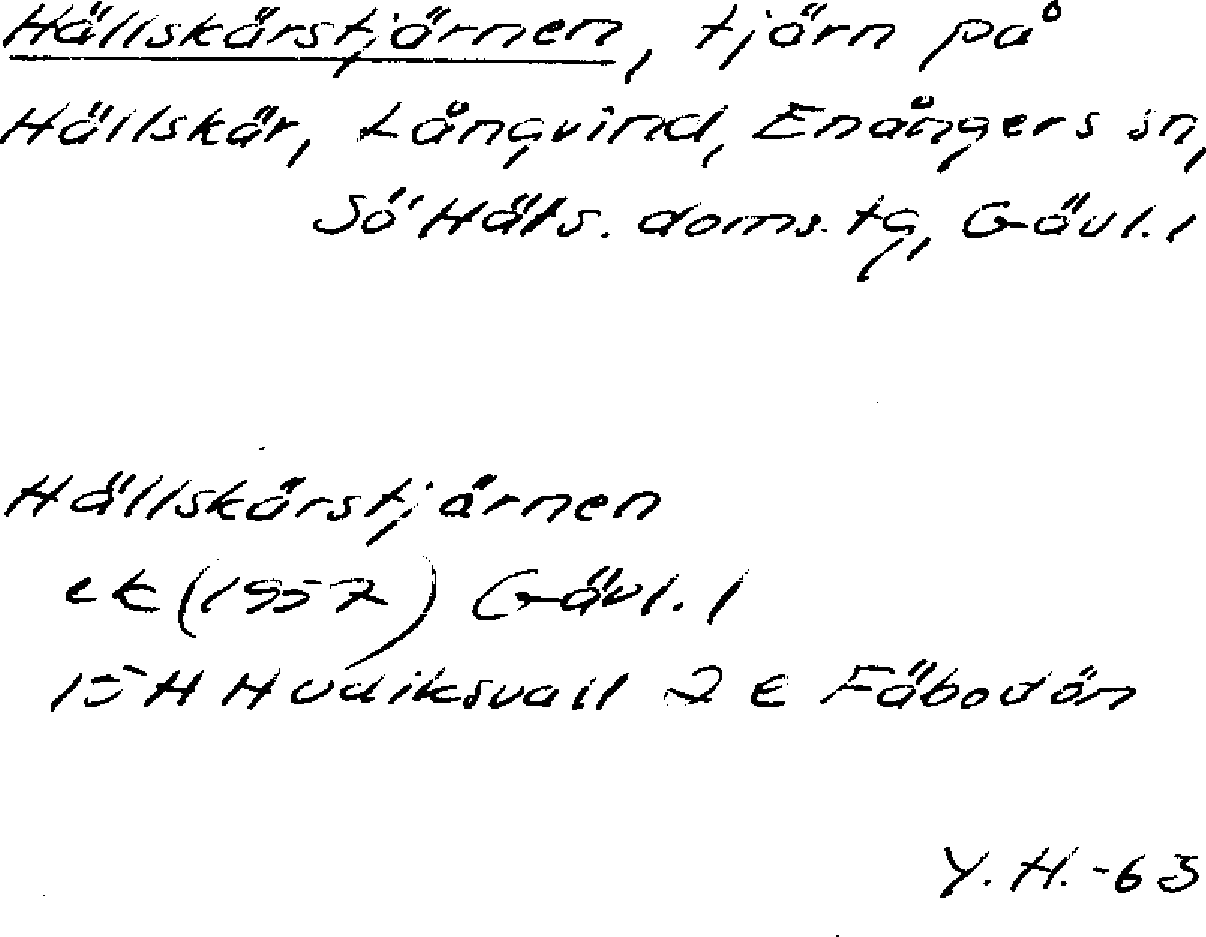 Hällskärstjärnen, tjärn på
Hällskär, Långvind, Enångers sn,
Sö Häls. doms. tg, Gävl. l
Hällskärstjärnen
ek (1957) Gävl. l
15H Hudiksvall 2 e Fäbodön
Y. H. -63